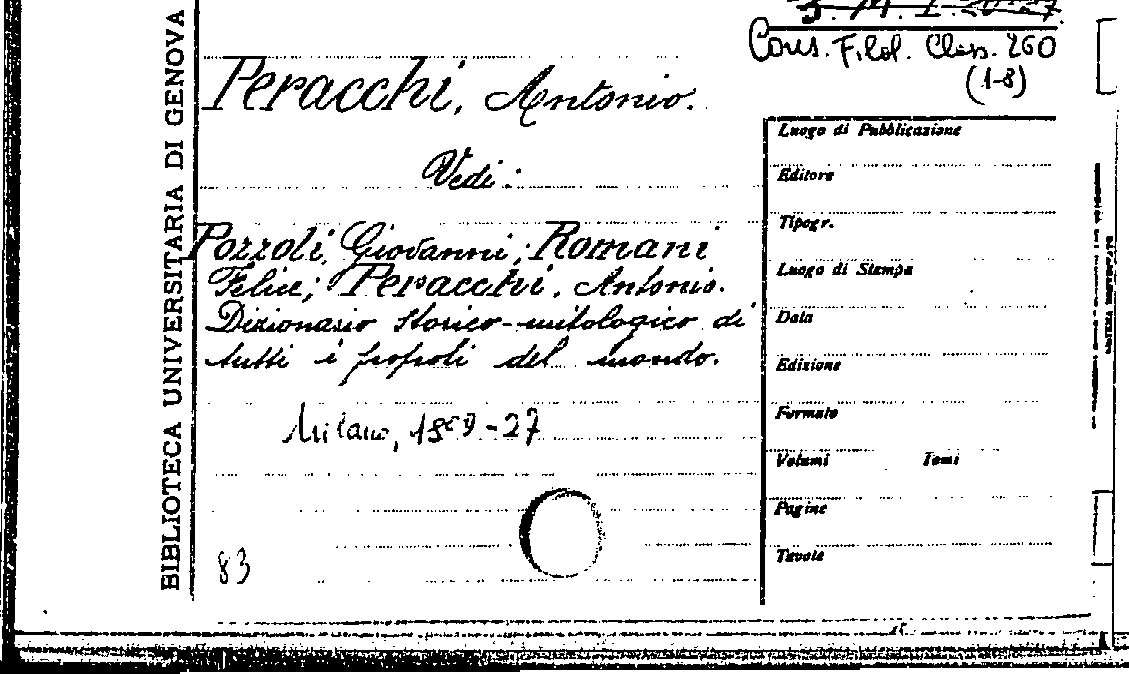 Cons. Filol. Class. 260
(1-8)
BIBLIOTECA UNIVERSITARIA DI GENOVA
Peracchi, Antonio.
Vedi:
Pozzoli, Giovanni; Romani
Felice; Peracchi, Antonio.
Dizionario storico-mitologico di
tutti i popoli del mondo.
Milano, 1809-27
83
Luogo di Pubblicazione
Editore
Tipogr.
Luogo di Stampa
Data
Edizione
Formato
Volumi Tomi
Pagine
Tavole